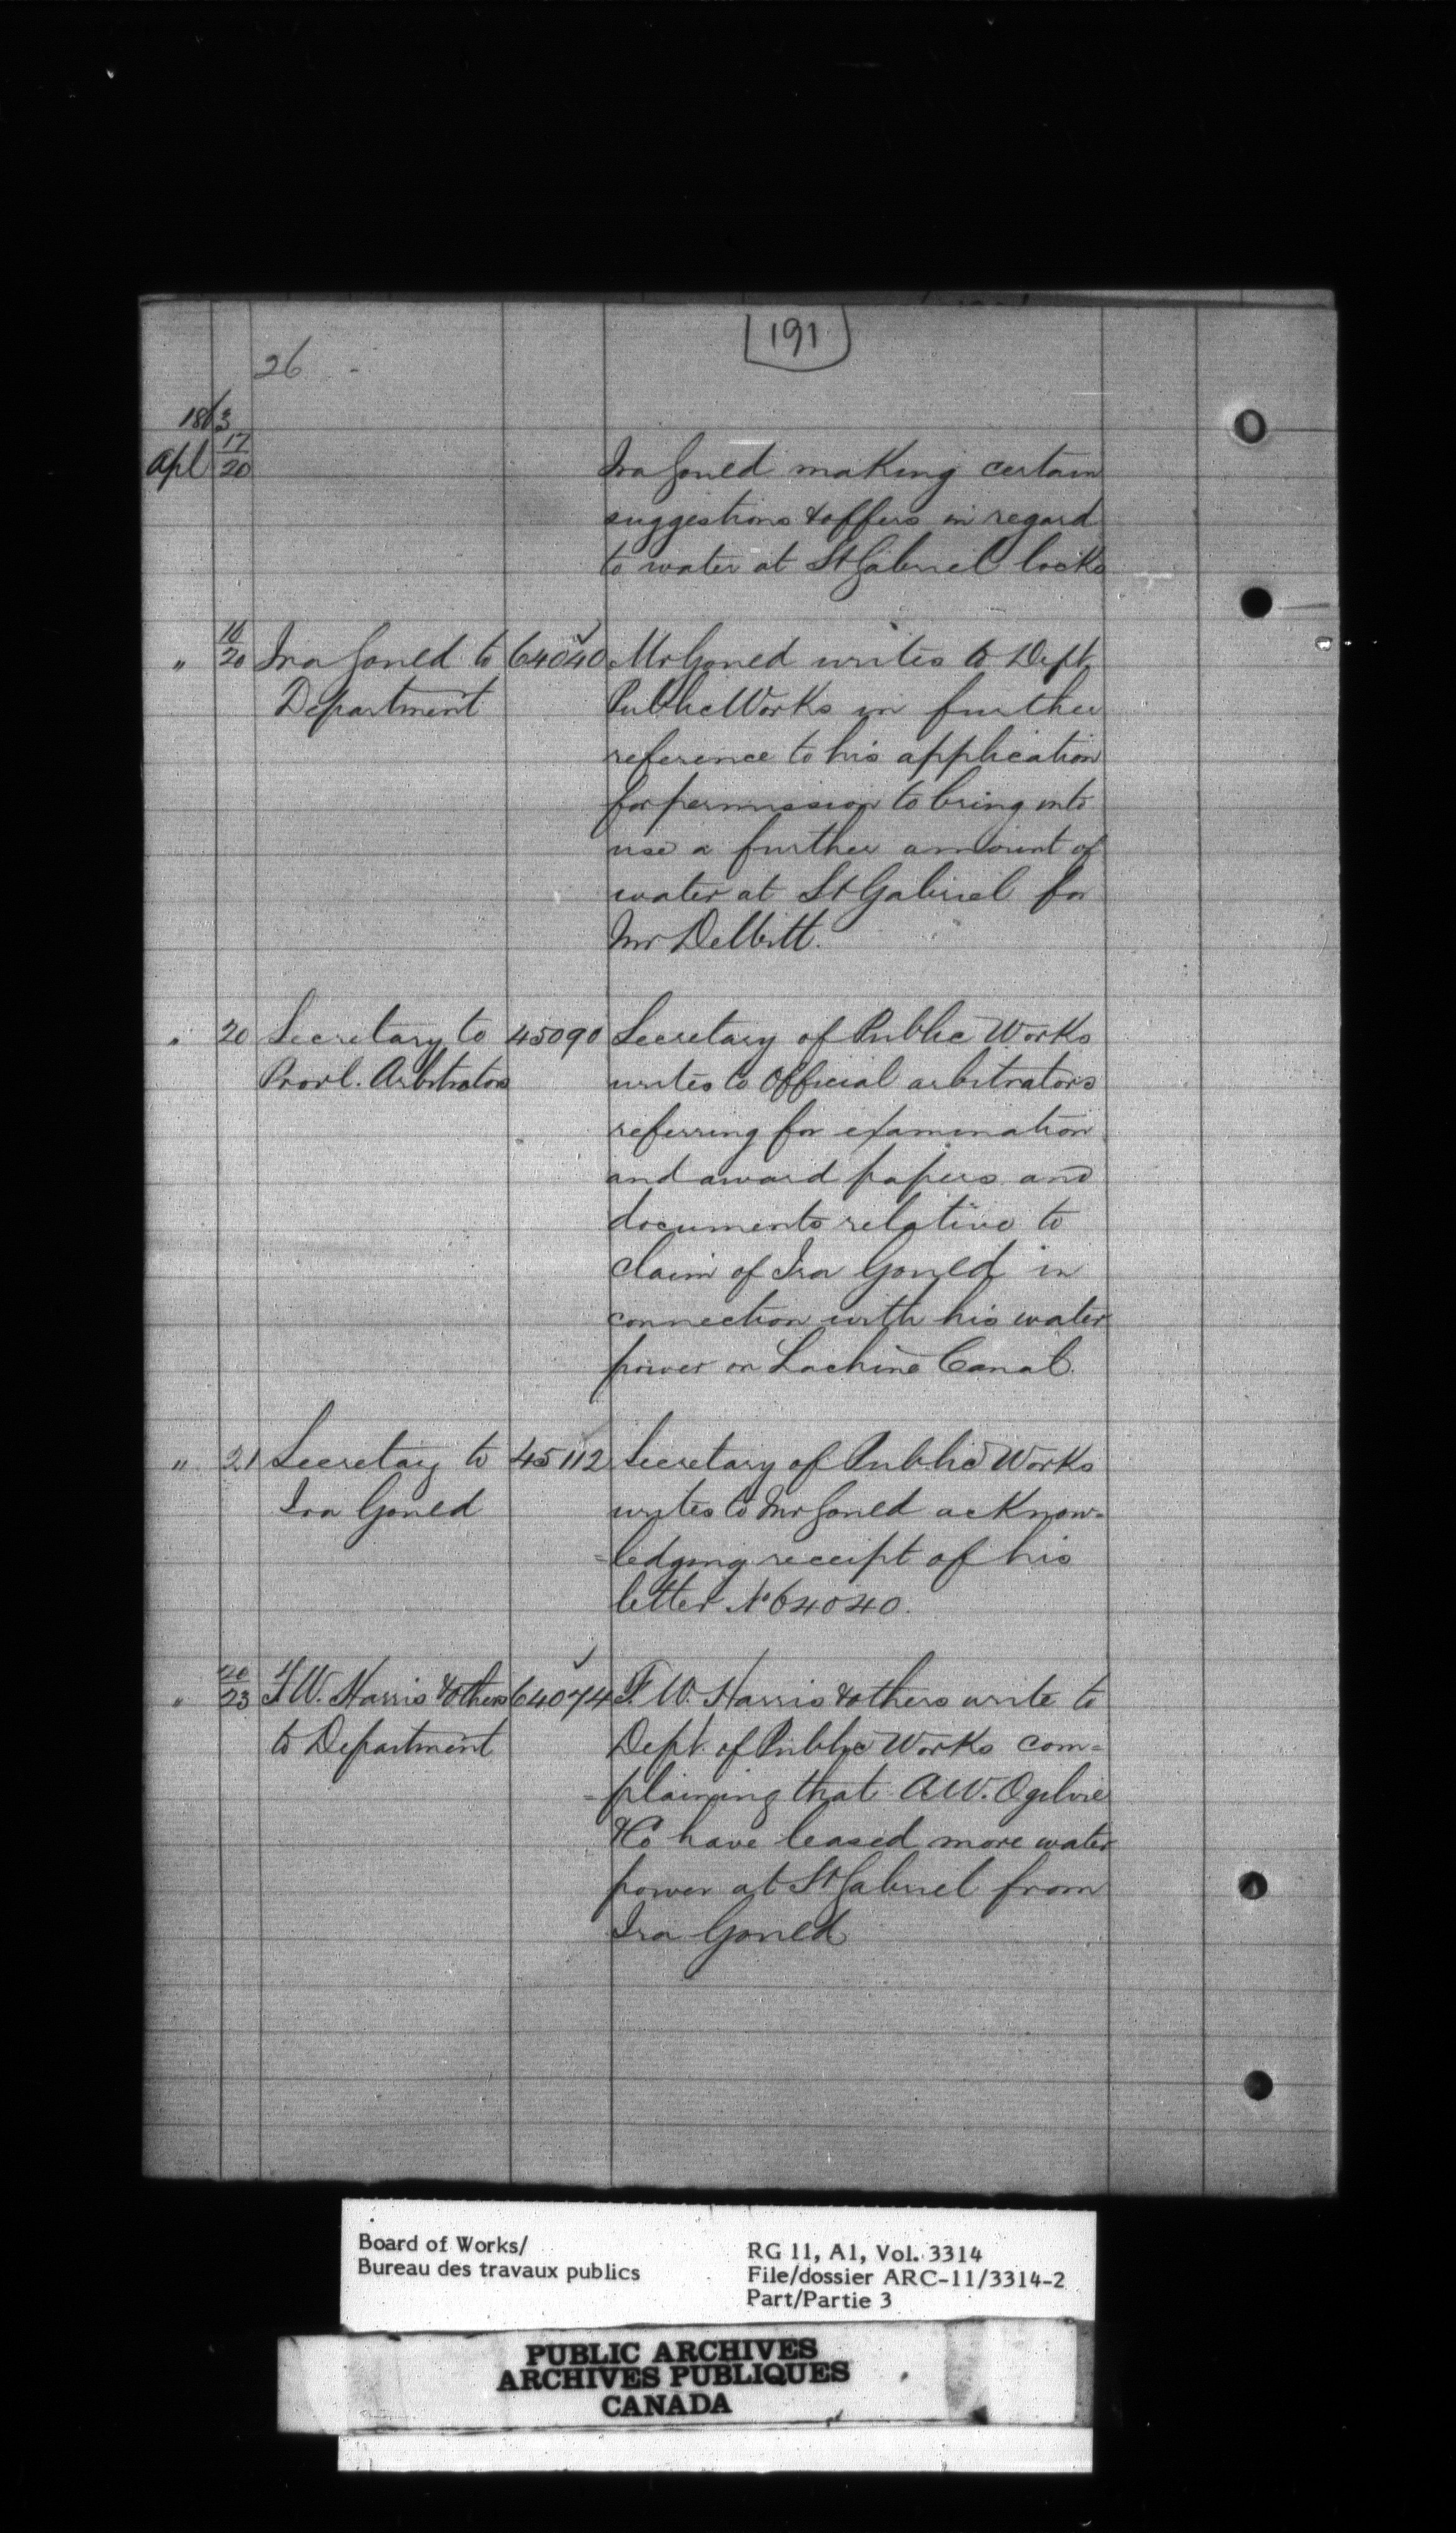 191
26 -
1863
Apl 17/20 Ira Gould making certain
suggestions & offers in regard
to water at St Gabriel locks
" 16/20 Ira Gould to 64040 Mr Gould writes to Dept
Department Public Works in further
reference to his application
for permission to bring into
use a further amount of
water at St Gabriel for
Mr DeWitt.
" 20 Secretary to 45090 Secretary of Public Works
Provl. Arbitrators writes to Official arbitrators
referring for examination
and award papers and
documents relative to
Claim of Ira Gould in
connection with his water
power on Lachine Canal.
" 21 Secretary to 45112 Secretary of Public Works
Ira Gould writes to Mr Gould acknow-
-ledging receipt of his
letter No 64040.
" 20/23 F.W. Harris & others 64074 F. W. Harris & others write to
to Department Dept. of Public Works com-
-plaining that A.W. Ogilvie
& Co have leased more water
power at St Gabriel from
Ira Gould
Board of Works/
Bureau des travaux publics
RG 11, A1, Vol. 3314
File/dossier ARC-11/3314-2
Part/Partie 3
PUBLIC ARCHIVES
ARCHIVES PUBLIQUES
CANADA